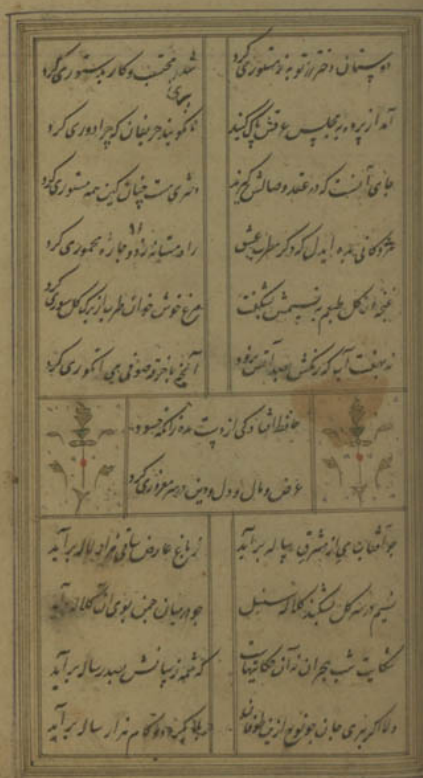 دوستان دختر رز توبه ز مستوری کرد
شد بر محتسب و کار بدستوری کرد
آمد از پرده بمجلس عرقش پاک کنید
تا نگویند حریفان که چرا دوری کرد
جای آنست که در عقد وصالش گیرند
دختری مست چنین کین همه مستوری کرد
مژدگانی بده ایدل که دگر مطرب عشق
راه مستانه زد و چاره مخموری کرد
غنچه گلبن طبعم ز نسیمش بشکفت
مرغ خوش خوان طرب از برگ گل سوری کرد
نه بهفت آب که رنگش بصد آتش نرود
آنچ با خرقه صوفی می انگوری کرد
حافظ افتادگی از دست مده زانکه حسود
عرض و مال و دل و دین در سر مغروری کرد
چو آفتاب می از مشرق پیاله برآید
ز باغ عارض ساقی هزار لاله برآید
نسیم در سر گل بشکند کلاله سنبل
چو در میان چمن بوی آن کلاله برآید
شکایت شب هجران نه آن حکایتهاست
که شمه ز بیانش بصد رساله برآید
چو نوح طوفان
بلا بگردد و کام هزار ساله برآید